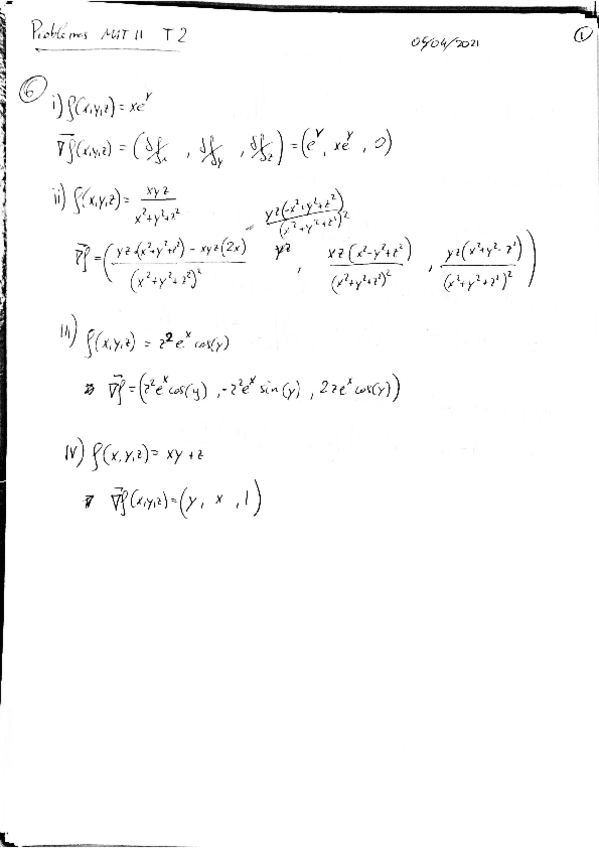 Problemas MAT II T2 05/04/2021 1
6 i) f(x,y,z) = xe^y
∇f(x,y,z) = (∂f/∂x , ∂f/∂y , ∂f/∂z) = (e^y, xe^y, 0)
ii) f(x,y,z) = xyz/(x²+y²+z²)
∇f = ((yz·(x²+y²+z²) - xyz(2x))/(x²+y²+z²)² = yz(-x²+y²+z²)/(x²+y²+z²)² , xz(x²-y²+z²)/(x²+y²+z²)² , yz(x²+y²-z²)/(x²+y²+z²)²)
III) f(x,y,z) = z²e^x cos(y)
∇f = (z²e^x cos(y) , -z²e^x sin(y) , 2ze^x cos(y))
IV) f(x,y,z) = xy + z
∇f(x,y,z) = (y, x, 1)